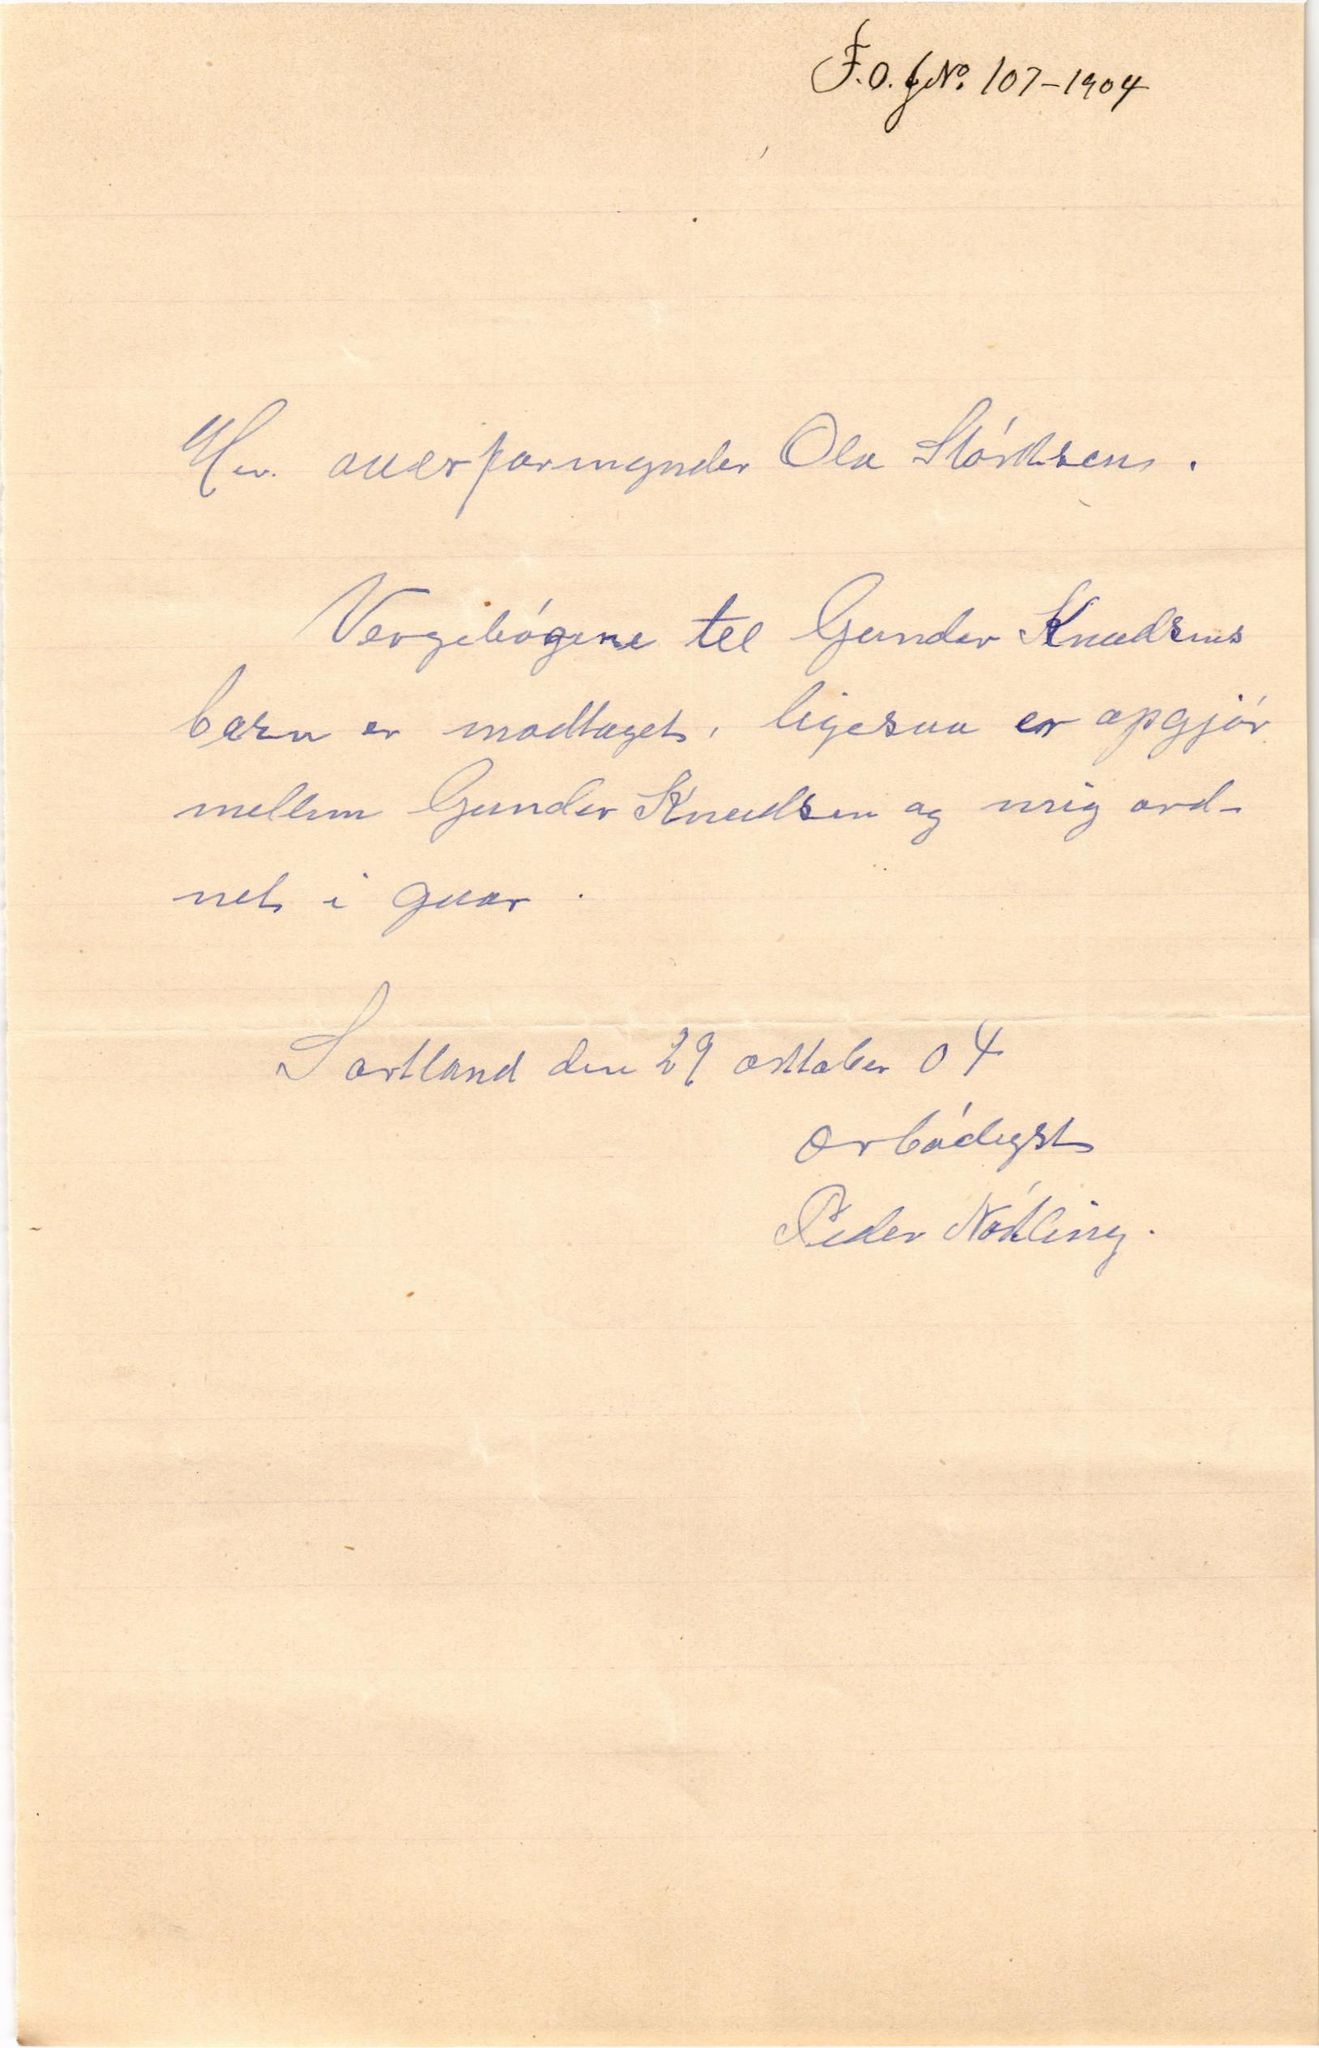 F.O. JNo. 107-1904
Hr. overformynder Ola Störksen.
Vergebógene til Gunder Knudsens
barn er modtaget, ligesaa er opgjór
mellem Gunder Knudsen og mig ord-
net i gaar.
Sortland den 29 oktober 04
ærbódigst
Peder Nódling.